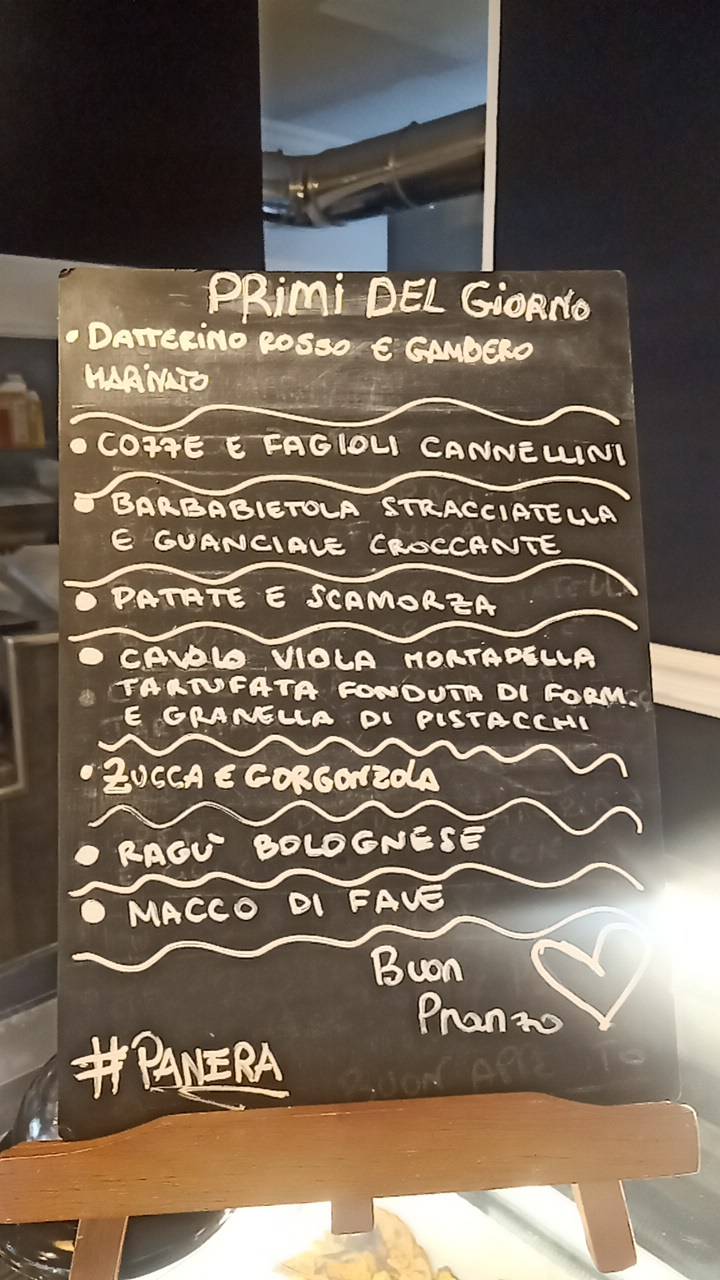 PRIMI DEL GIORNO
• DATTERINO ROSSO E GAMBERO
MARINATO
• COZZE E FAGIOLI CANNELLINI
• BARBABIETOLA STRACCIATELLA
E GUANCIALE CROCCANTE
• PATATE E SCAMORZA
• CAVOLO VIOLA MORTADELLA
TARTUFATA FONDUTA DI FORM.
E GRANELLA DI PISTACCHI
• ZUCCA E GORGONZOLA
• RAGÙ BOLOGNESE
• MACCO DI FAVE
Buon
Pranzo
#PANERA
BUON APPE TO